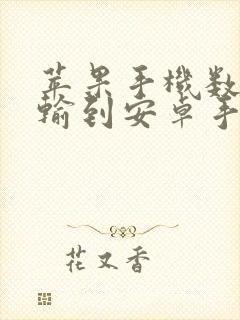 苹果手機数
輸到安卓手
花又香